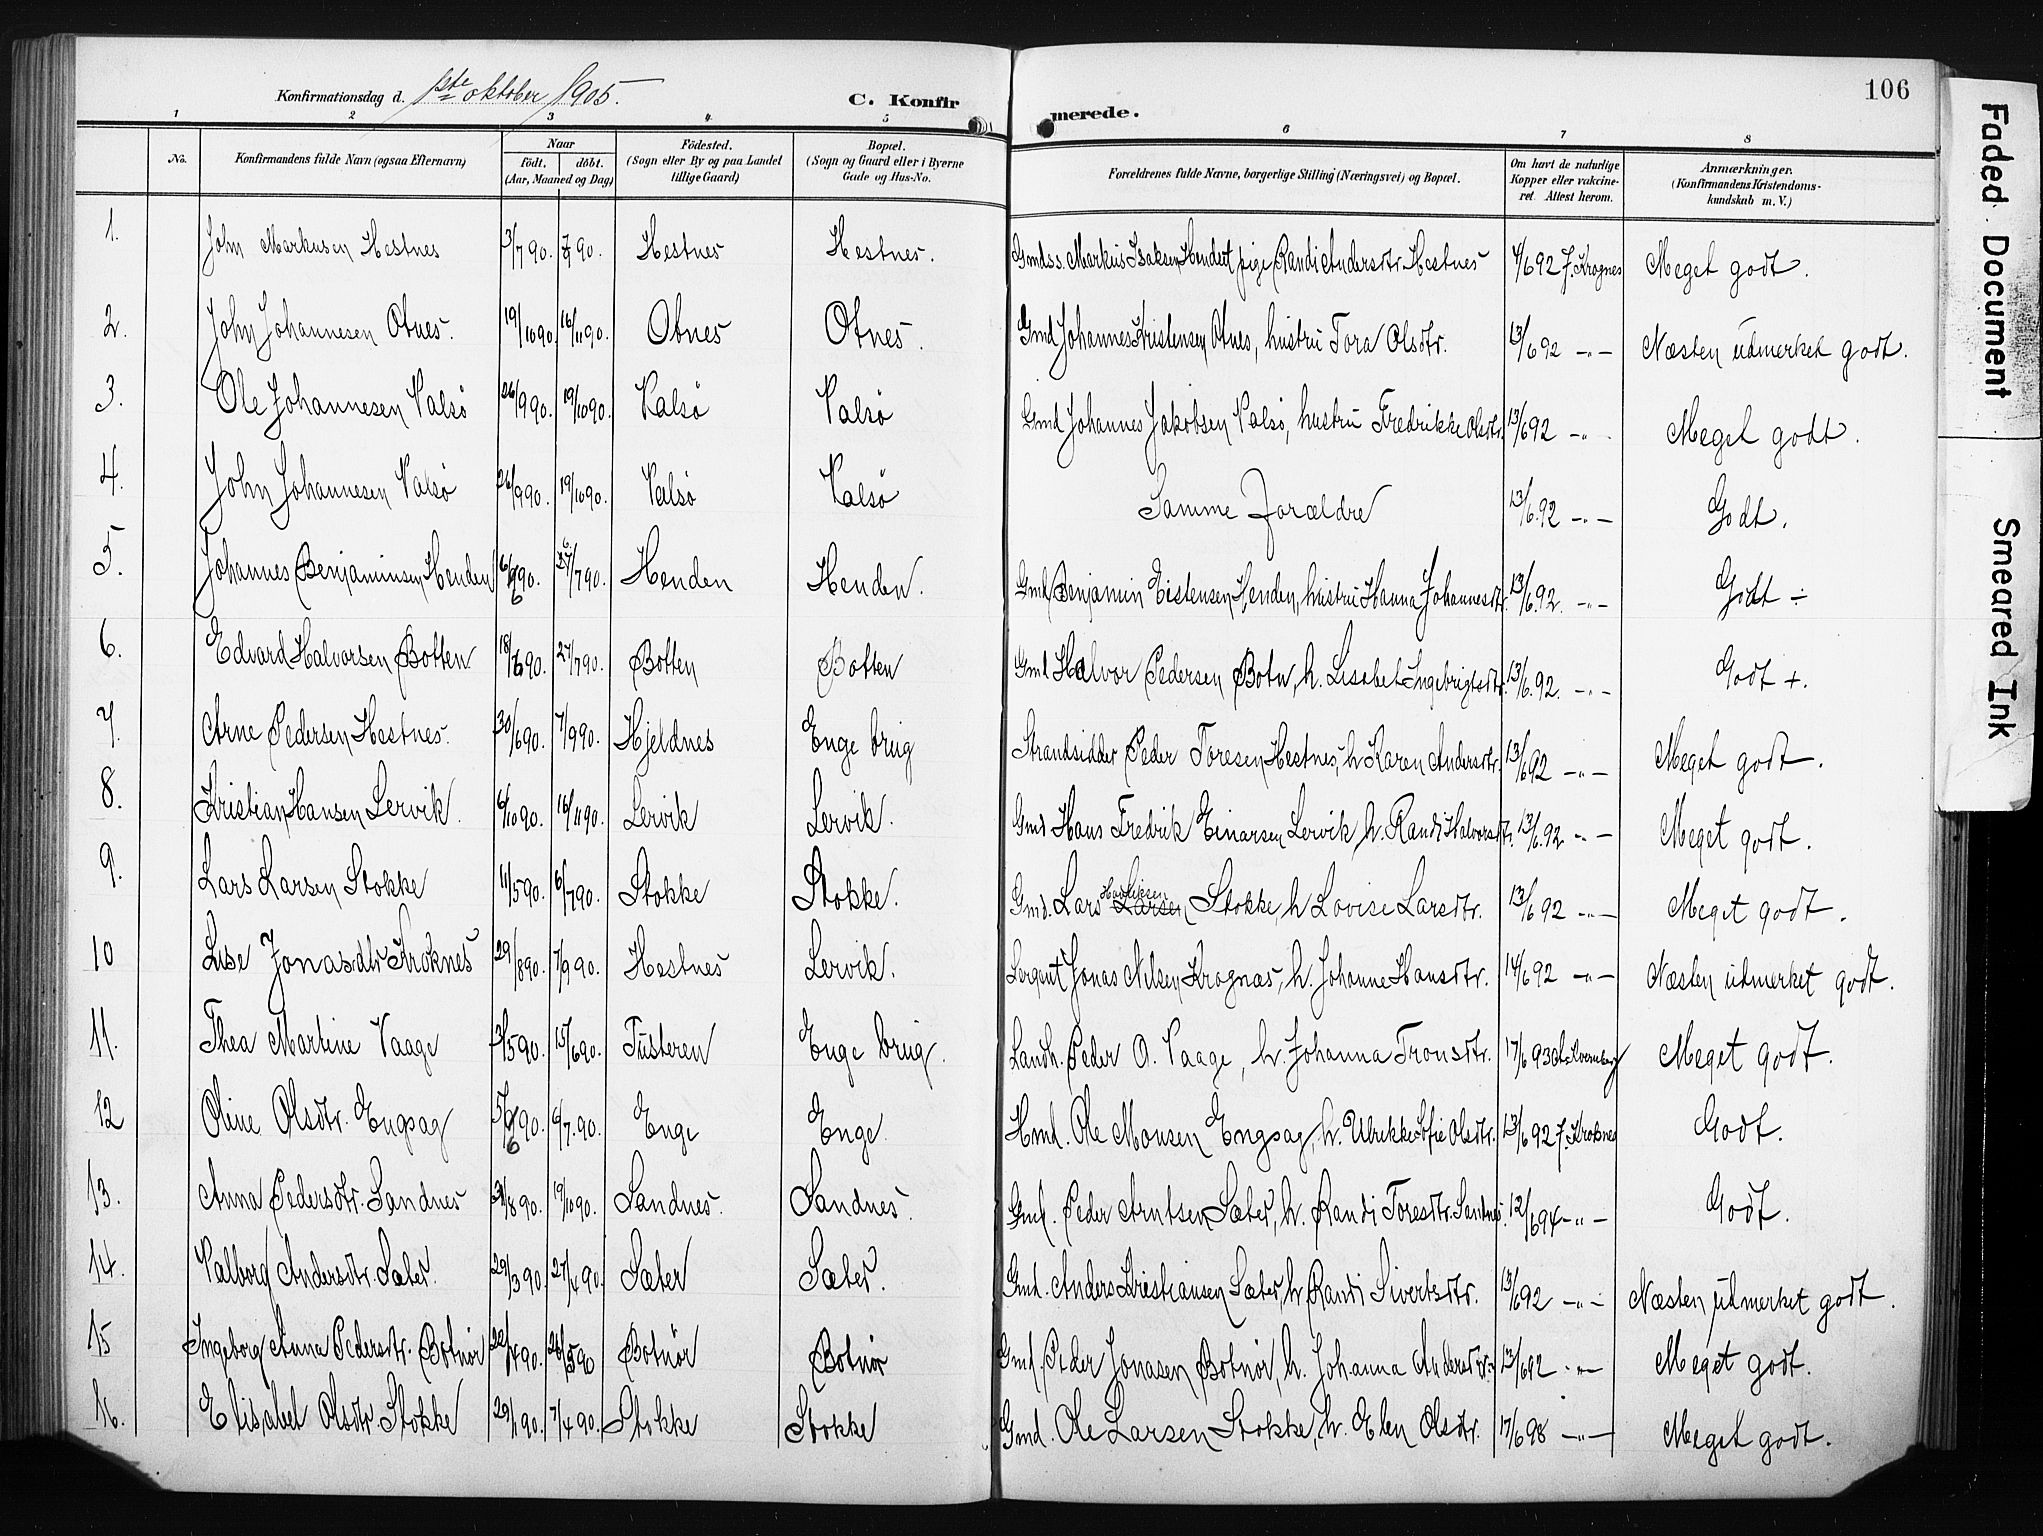 Konfirmationsdag d. 1ste oktober 1905.
C. Konfirmerede.
106
1 2 3 4 5 6 7 8
No.
Konfirmandens fulde Navn (ogsaa Efternavn)
Naar
født. døbt.
(Aar, Maaned og Dag)
Fødested.
(Sogn eller By og paa Landet
tillige Gaard)
Bopæl.
(Sogn og Gaard eller i Byerne
Gade og Hus-No.
Forældrenes fulde Navne, borgerlige Stilling (Næringsvei) og Bopæl.
Om havt de naturlige
Kopper eller vakcine-
ret. Attest herom.
Anmærkninger.
(Konfirmandens Kristendoms-
kundskab m. V.)
1. John Markusen Hestnes 3/7 90. 90. Hestnes Hestnes. Gmdss. Markus Isaksen Hendset pige Randi Andersdtr. Hestnes 4/6 92 J. Krognes Meget godt.
2. John Johannesen Otnes. 19/10 90 16/11 90. Otnes Otnes. Gmd Johannes Kristensen Otnes, hustru Tora Olsdtr. 13/6 92 -"- Næsten udmerket godt.
3. Ole Johannesen Valsø 26/9 90. 19/10 90. Valsø Valsø Gmd Johannes Jakobsen Valsø, hustru Fredrikke Olsdtr. 13/6 92 -"- Meget godt.
4. John Johannesen Valsø 26/9 90. 19/10 90. Valsø Valsø Samme Forældre 13/6. 92 -"- Godt.
5. Johannes Benjaminsen Henden 6/6 90. 27/7 90. Henden Henden. Gmd Benjamin Eistensen Henden, hustru Hanna Johannesdtr. 13/6. 92. -"- Godt ÷
6. Edvard Halvorsen Botten 18/6 90. 27/7 90. Botten Botten Gmd Halvor Pedersen Botn, h. Lisabet Ingebrigtsdtr. 13/6. 92. -"- Godt +.
7. Arne Pedersen Hestnes. 30/6 90. 7/9 90. Hjeldnes Enge brug Strandsidder Peder Toresen Hestnes, h Karen Andersdtr. 13/6 92 -"- Meget godt.
8. Kristian Hansen Lervik. 6/10 90. 16/11 90. Lervik Lervik. Gmd Hans Fredrik Einarsen Lervik h. Randi Halvorsdtr. 13/6. 92 -"- Meget godt.
9. Lars Larsen Stokke 11/5 90. 6/7 90. Stokke Stokke. Gmd. Lars Larsen Stokke, h Lovise Larsdtr. 13/6 92 -"- Meget godt.
10 Lise Jonasdtr Kroknes 29/8 90. 7/9 90. Hestnes Lervik. Sergent Jonas Nilsen Krognæs, h. Johanne Hansdtr. 14/6 92 -"- Næsten udmerket godt.
11. Thea Martine Vaage 3/5 90. 15/6 90. Tusteren Enge brug. Landh. Peder O. Vaage, h. Johanna Tronsdtr. 17/6 93 Meget godt.
12 Oline Olsdtr. Engsag 5/6 90. 6/7. 90. Enge Enge. Hmd. Ole Monsen Engsag, h. Ulrikke Sofie Olsdtr. 13/6 92 J. Kroknes Godt.
13. Anna Pedersdtr. Sandnes 31/8 90. 19/10 90. Sandnes. Sandnes. Gmd. Peder Arntsen Sæter, h. Randi Toresdtr. Sandnes. 12/6 94 -"- Godt.
14. Valborg Andersdtr. Sæter. 29/3 90. 27/4 90. Sæter Sæter. Gmd. Anders Kristiansen Sæter, h Randi Sivertsdtr. 13/6 92 -"- Næsten udmerket godt.
15 Ingeborg Anna Pedersdtr. Botnør 22/4 90. 26/5 90 Botnør Botnør Gmd. Peder Jonasen Botnør, h. Johanna Andersdtr. 13/6 92 -"- Meget godt.
16. Elisabet Olsdtr Stokke 29/1 90. 7/4 90. Stokke Stokke Gmd. Ole Larsen Stokke, h. Elen Olsdtr. 17/6 98 -"- Meget godt.
Faded Document
Smeared Ink